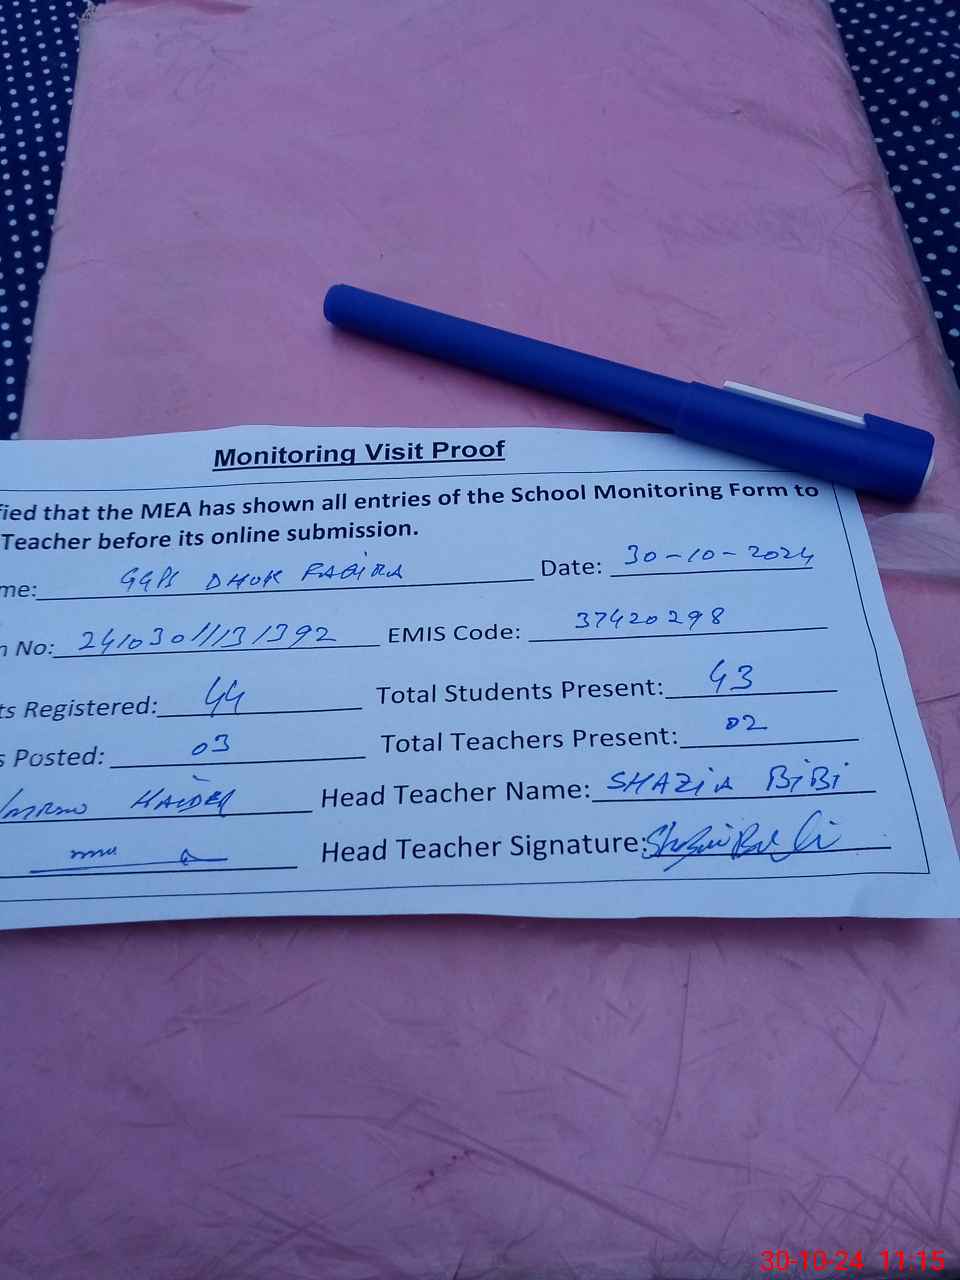 Monitoring Visit Proof
fied that the MEA has shown all entries of the School Monitoring Form to
Teacher before its online submission.
me: GGPS DHOK Date: 30-10-2024
No: EMIS Code: 37420298
ts Registered: 44 Total Students Present: 43
s Posted: 03 Total Teachers Present: 02
HAIDER Head Teacher Name: SHAZIA BiBi
Head Teacher Signature:
30-10-24 11:15